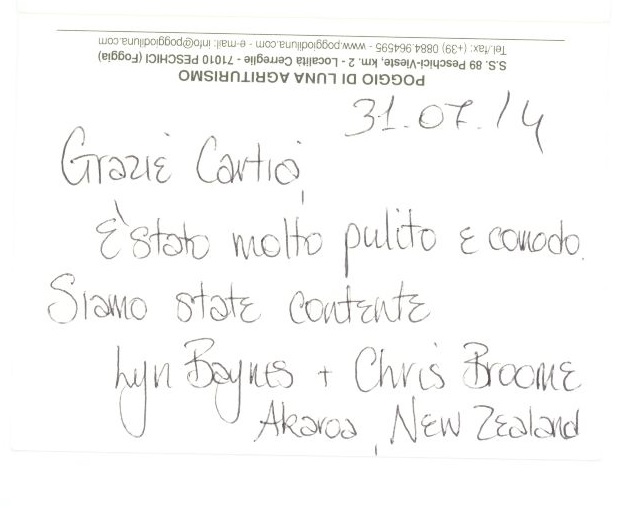 POGGIO DI LUNA AGRITURISMO
S.S. 89 Peschici-Vieste, km. 2 - Località Cerreglie - 71010 PESCHICI (Foggia)
Tel./fax: (+39) 0884 964595 - www.poggiodiluna.com - e-mail: info@poggiodiluna.com
31.07.14
Grazie
È stato molto pulito e comodo.
Siamo state contente
Lyn Baynes + Chris Broome
Akaroa, New Zealand